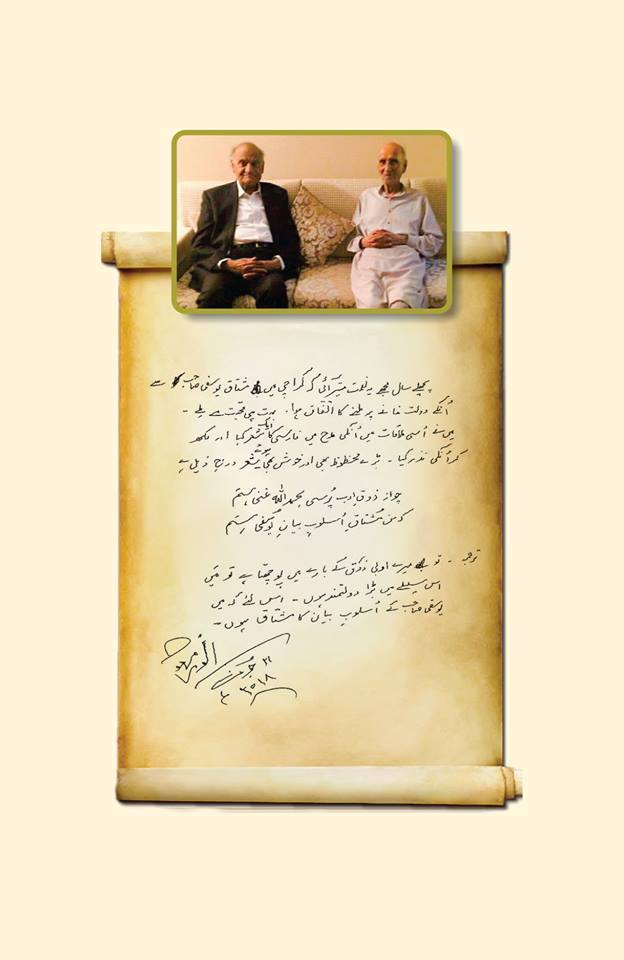 پچھلے سال مجھے یہ نعمت میسّر آئی کہ کراچی میں مشتاق یوسفی صاحب سے
اُنکے دولت خانے پر ملنے کا اتّفاق ہوا۔ بہت ہی محبّت سے ملے۔
میں نے اُسی ملاقات میں اُنکی مدح میں فارسی کا ایک شعر کہا اور لکھ
کر اُنکی نذر کیا۔ بڑے محظوظ بھی اور خوش بھی ہوئے شعر درج ذیل ہے
چو از ذوقِ ادب پُرسی بحمداللہ غنی ہستم
کہ من مُشتاقِ اُسلوبِ بیانِ یُوسفی ہستم
ترجمہ ۔ تو مجھ سے میرے ادبی ذوق کے بارے میں پوچھتا ہے تو مَیں
اس سلسلے میں بڑا دولتمند ہوں۔ اس لئے کہ میں
یوسفی صاحب کے اُسلوبِ بیان کا مشتاق ہوں۔
انور مسعود
۲۱ جون
۲۰۱۸ ء